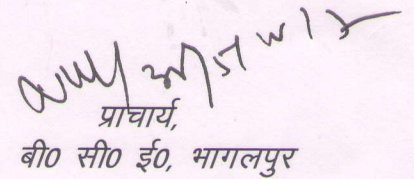 प्राचार्य,
बी० सी० ई०, भागलपुर